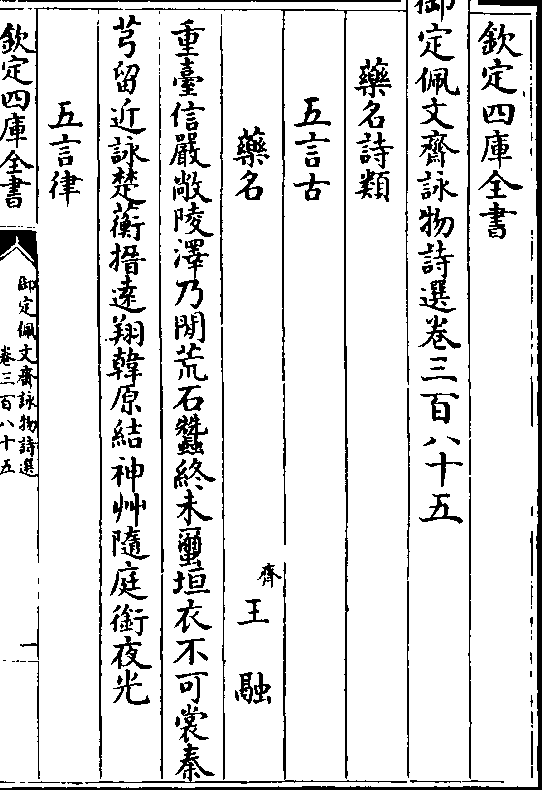 欽定四庫全書
御定佩文齋詠物詩選卷三百八十五
藥名詩類
五言古
藥名
齊王融
重臺信嚴敞陵澤乃閒荒石蠶終未繭垣衣不可裳秦
芎留近詠楚蘅搢遠翔韓原結神艸隨庭銜夜光
五言律
欽定四庫全書
御定佩文齋詠物詩選
卷三百八十五
一